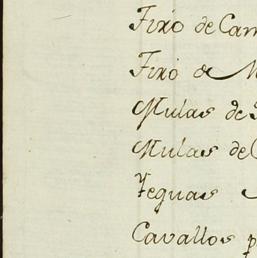 Fixo de Cam
Fixo de M
Mulas de
Mulas de C
Yeguas
Cavallos p